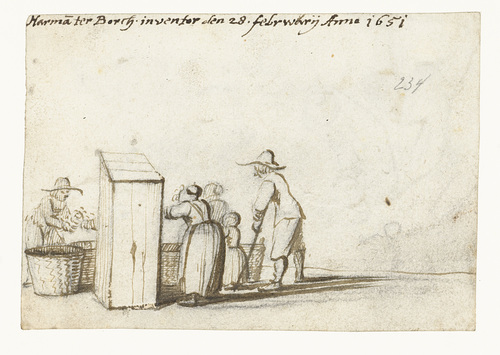 Harmā ter Borch · inventor den 28 · febrwbrij Anno 1651
234